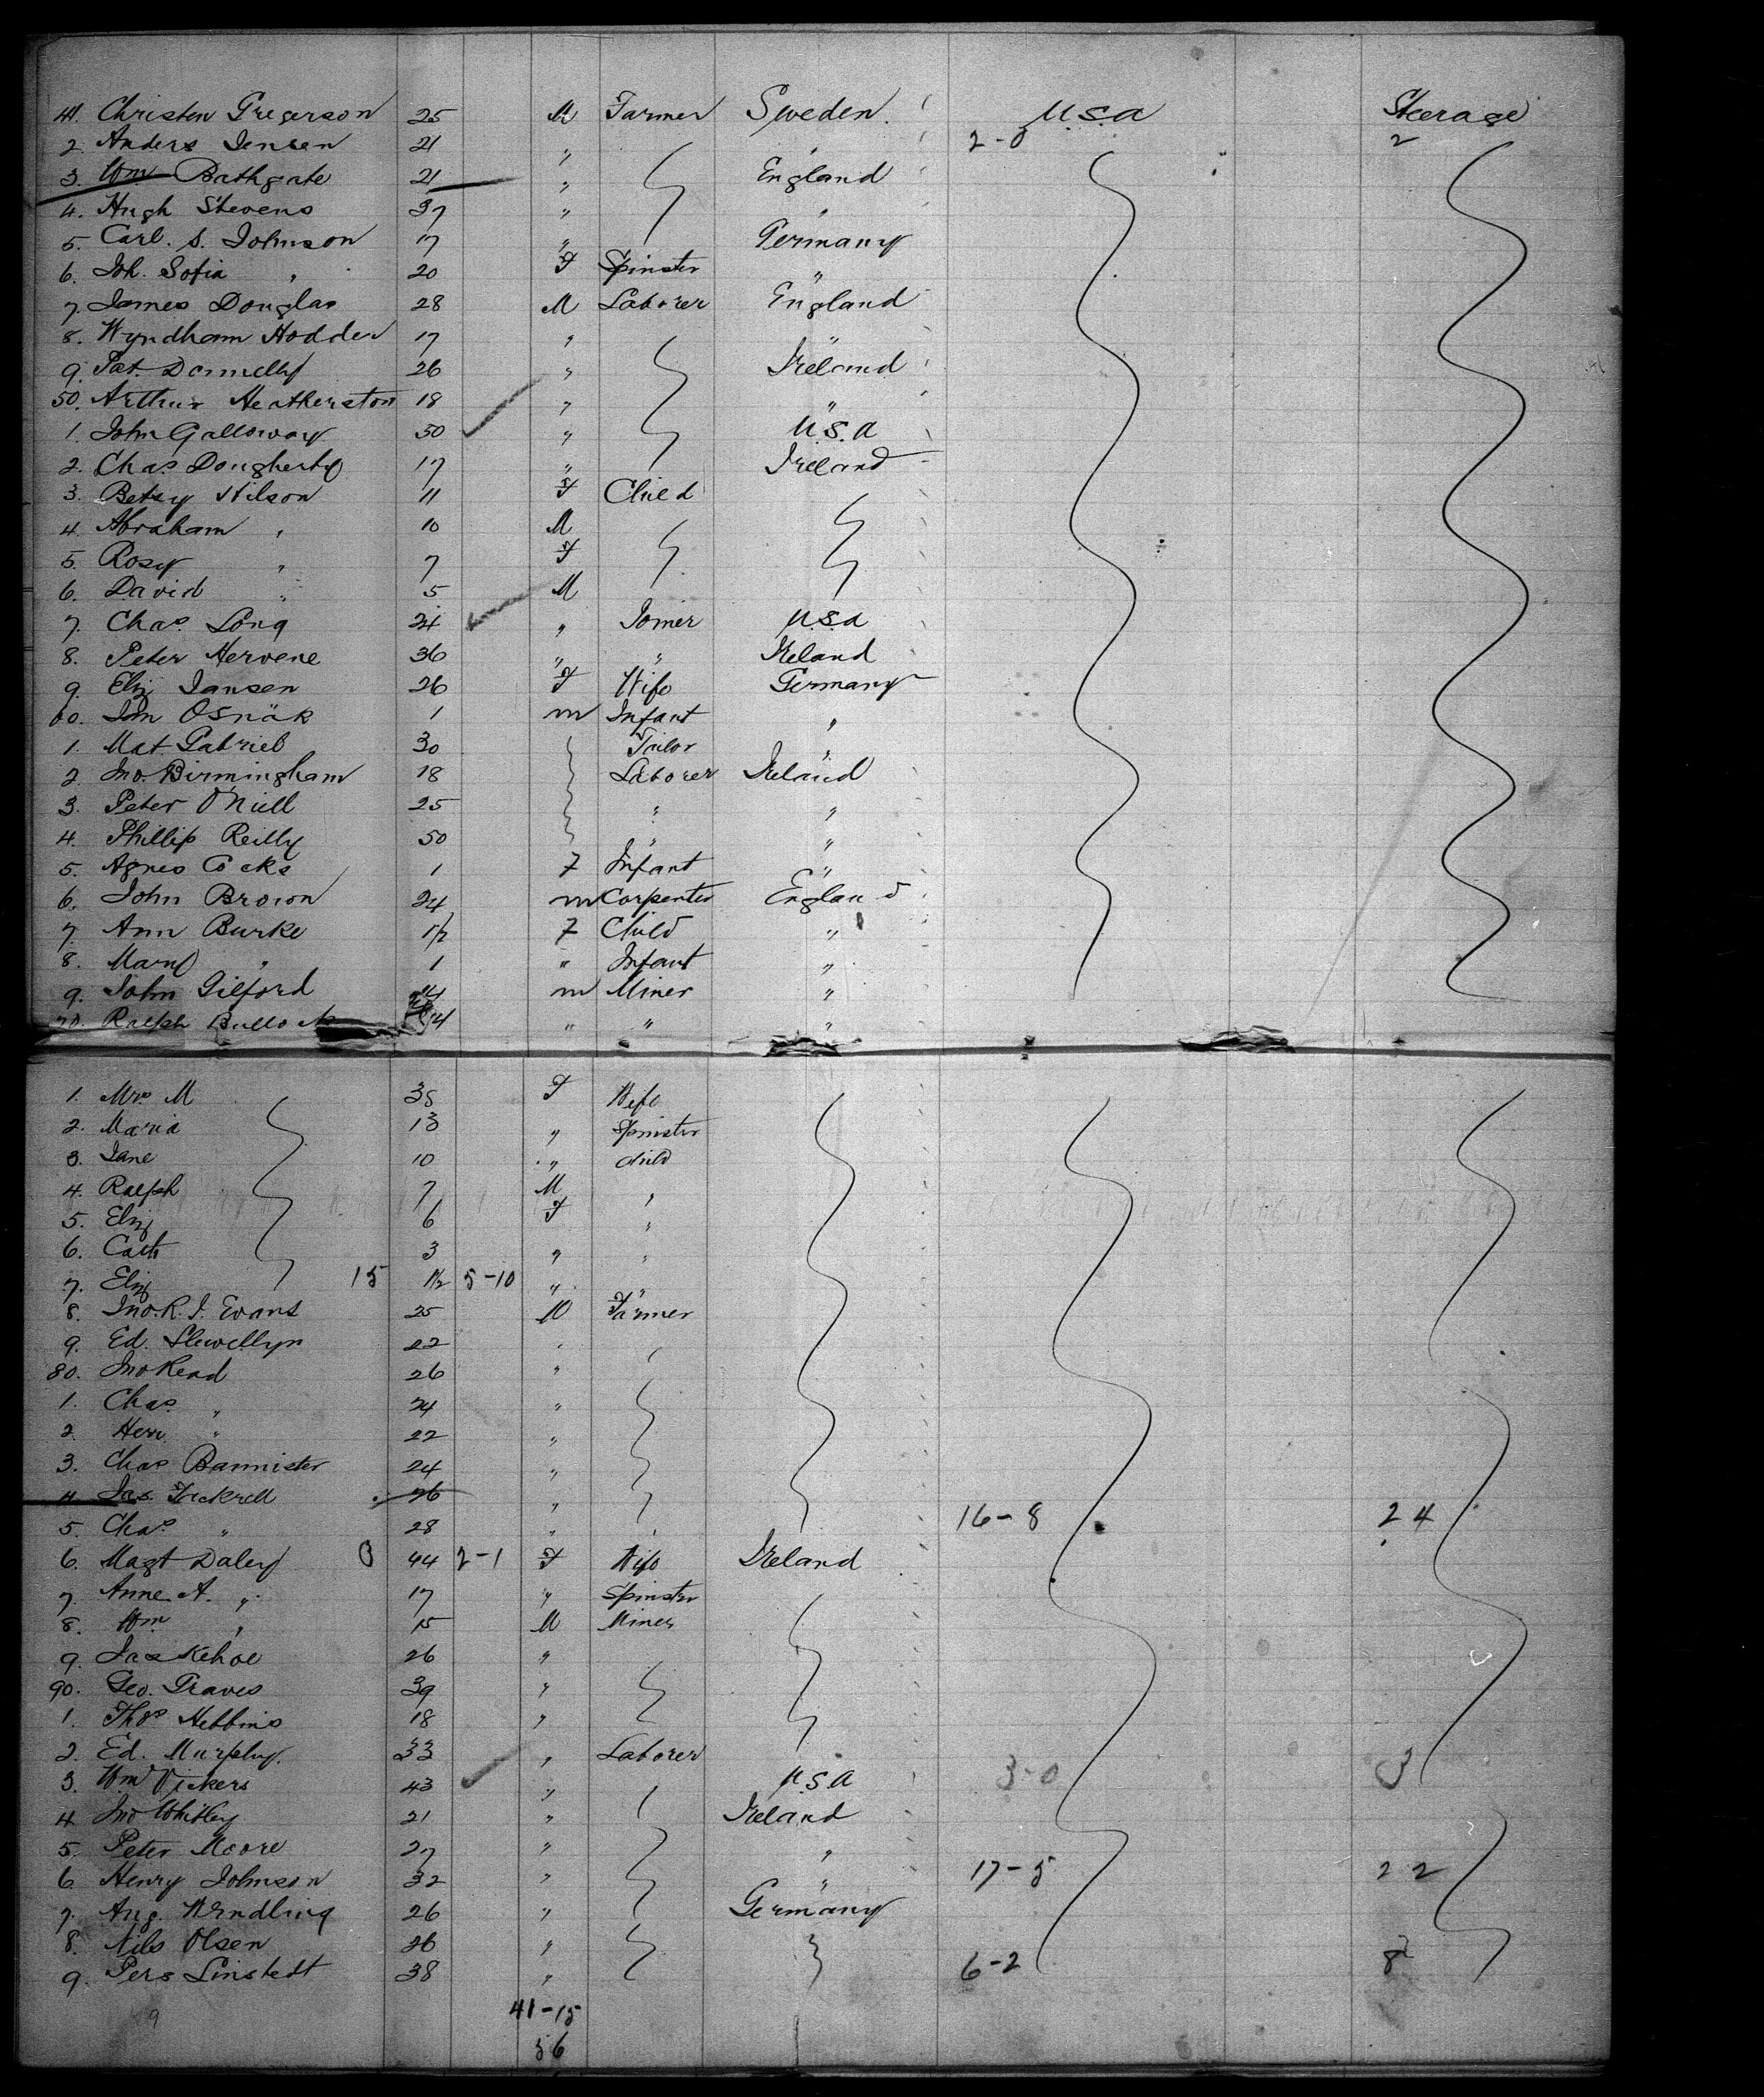 41. Christen Gregerson 25 M Farmer Sweden U.S.A Steerage
2. Anders Jensen 21 " " 2-0 2
3. Wm Bathgate 21 " England
4. Hugh Stevens 37 " "
5. Carl. S. Johnson 17 " Germany
6. Joh. Sofia " 20 F Spinster "
7. James Douglas 28 M Laborer England
8. Wyndham Hodder 17 " "
9. Pat. Donnelly 26 " Ireland
50. Arthur Heatherston 18 " "
1. John Galloway 50 " U.S.A
2. Chas Dougherty 17 " Ireland
3. Betsy Wilson 11 F Child
4. Abraham " 10 M
5. Rosy " 7 F
6. David " 5 M
7. Chas. Long 24 " Joiner U.S.A
8. Peter Hervene 36 " " Ireland
9. Eliz Jansen 26 F Wife Germany
60. Osnäk 1 m Infant "
1. Mat Gabriel 30 Tailor "
2. Jno. Birmingham 18 Laborer Ireland
3. Peter O'Niell 25 " "
4. Phillip Reilly 50 " "
5. Agnes Cocks 1 F Infant "
6. John Brown 24 m Carpenter England
7. Ann Burke 1½ F Child "
8. " 1 " Infant "
9. John Gilford m Miner "
70. Ralph Bullock " " "
1. Mrs. M 35 F Wife
2. Maria 13 " Spinster
3. Jane 10 " child
4. Ralph 7 M "
5. Eliz 6 F "
6. Cath 3 " "
7. Eliz 15 1½ 5-10 " "
8. Jno. R. J. Evans 25 M Farmer
9. Ed. Llewellyn 22 "
80. Jno Read 26 "
1. Chas. " 24 "
2. Hen " 22 "
3. Chas Bannister 24 "
4. Jas. Tickrell 26 " 16-8 24
5. Chas. " 28 " "
6. Magt Daley 0 44 2-1 F Wife Ireland
7. Anne A. " 17 " Spinster
8. Wm " 15 M Miner
9. Jas Kehoe 26 "
90. Geo. Graves 39 "
1. Thos Hebbins 18 "
2. Ed. Murphy. 33 " Laborer
3. Wm Vickers 43 " U.S.A 3-0 3
4. Jno Whitley 21 " Ireland
5. Peter Moore 27 " "
6. Henry Johnson 32 " " 17-5 22
7. Aug. Wendling 26 " Germany
8. Nils Olsen 26 "
9. Pers Linstedt 38 " 6-2 8
9 41-15
56